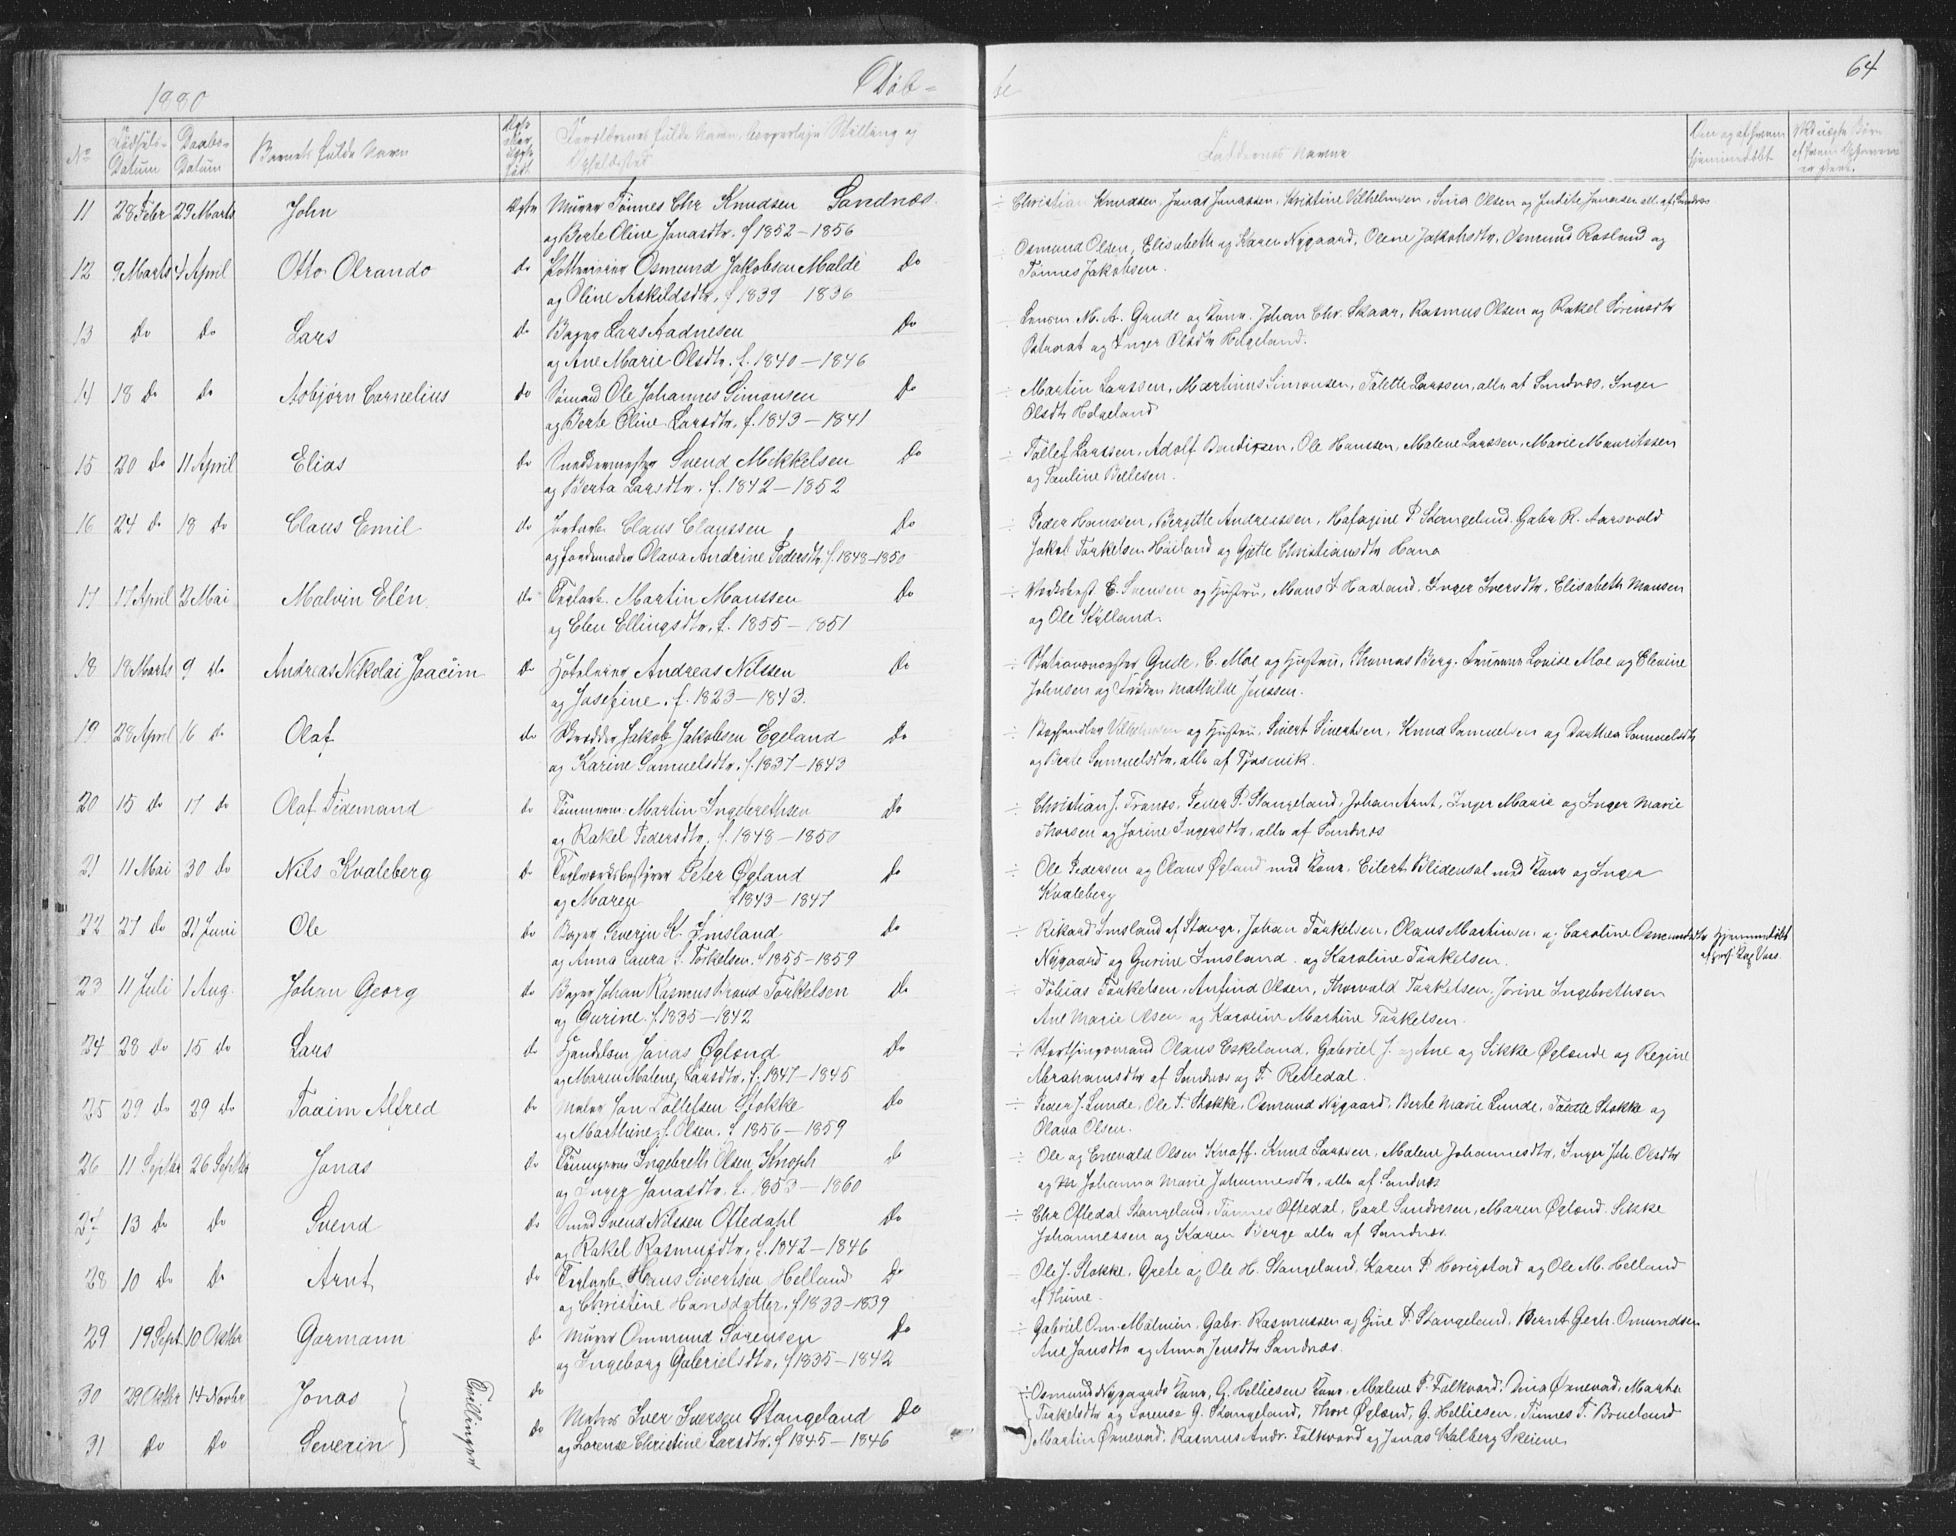 1880
Døb-
te
64
No
Fødsels-
Datum
Daabs-
Datum
Barnets fulde Navn
Forældrenes fulde Navn, borgerlige Stilling og
Opholdssted
Faddernes Navne
hjemmedøbt
11 28 Febr 29 Marts John Ægte Murer Tønnes Chr Knudsen Sandnæs
og Berte Oline Jonasdtr. f 1852 – 1856
÷ Christian Knudsen, Jonas Jonassen, Kristine Vilhelmsen, Sina Olsen og Judite Jonassen all. af Sandnæs
12 9 Marts 4 April Otto Olrando do Osmund Jakobsen Malde Do
og Oline Askildsdtr. f 1839 1836
÷ Osmund Olsen, Elisabeth og Karen Nygaard, Olene Jakobsdtr, Osmund Rosland og
Tønnes Jakobsen.
13 do do Lars do Bager Lars Aadnesen Do
og Ane Marie Olsdtr. f. 1840 – 1846
Lensm M. A. Grude og Kone. Johan Chr. Skaar, Rasmus Olsen og Rakel Sørensdtr
og Inger Olsdtr Helgeland.
14 18 do do Asbjørn Cornelius do Sømand Ole Johannes Simonsen Do
og Berte Oline Larsdtr. f. 1843 – 1841
÷ Martin Larssen, Martinus Simonsen, Talette Larssen, alle af Sandnæs, Inger
Olsdtr Helgeland
15 20 do 11 April Elias do Svend Mikkelsen Do
og Berta Larsdtr. f. 1842 – 1852
÷ Tollef Larssen, Adolf Bendixen, Ole Hanssen, Malene Larssen, Marie Mauritssen
og Pauline
16 24 do 18 do Claus Emil do Jordarb. Claus Claussen Do
og Jordemoder Olava Andrine Pedersdtr f. 1848 – 1850
÷ Peder Hanssen, Bergitte Andreassen, P. Stangeland. Gabr R. Aarsvold
Jakob Torkelsen Høiland og Gitte Christiansdtr Hana
17 17 April 2 Mai Malvin Elen do Teglarb. Martin Manssen Do
og Elen Ellingsdtr. f. 1855 – 1851
÷ E. Svensen og Hustru, Mons T Haaland, Inger Iversdtr, Elisabeth Monsen
og Ole Kylland.
18 18 Marts 9 do Andreas Nikolai Joacim do Hoteleier Andreas Nilssen Do
og Josefine. f. 1823 – 1843.
÷ Stationsmester Grude. C. Moe og Hustru, Thomas Berg. Louise Moe og Elevine
Johnsen og Frøken Mathilde Jenssen.
19 28 April 16 do Olaf do Skrædder Jakob Jakobsen Egeland Do
og Karine Samuelsdtr. f. 1837 – 1843
÷ Vilhelmsen og Hustru, Sivert Sivertsen, Knud Samuelsen og Dorthea Samuelsdtr
og Berte Samuelsdtr, alle af
20 15 do 17 do Olaf Tidemand do Tømmerm. Martin Ingebrethsen Do
og Rakel Pedersdtr. f. 1848 – 1850
÷ Christian J. Tranæs, Peder P. Stangeland, Johan Arnt, Inger Marie og Inger Marie
Thorsen og Jorine Ingersdtr, alle af Sandnæs
21 11 Mai 30 do Nils Kvaleberg do Teglværksbestyrer Peter Øgland Do
og Maren f 1843 – 1847
÷ Ole Pedersen og Olaus Øgland med Kone, Eilert Blidensol med Kone og Inger
Kvaleberg
22 27 do 21 Juni Ole do Bager Severin K. Imsland Do
og Anna Laura f. Torkelsen. f 1855 – 1859
÷ Rikard Imsland af Stavgr, Johan Torkelsen, Olaus Martinsen, og Caroline Osmundsdtr
Nygaard og Gurine Imsland. og Karoline Torkelsen.
hjemmedøbt
23 11 Juli 1 Aug. Johan Georg do Bager Johan Rasmus Brand Torkelsen Do
og Gurine. f. 1835 – 1842
÷ Tobias Torkelsen, Anfind Olsen, Thorvald Torkelsen, Jorine Ingebrethsen
Ane Marie Olsen og Karoline Martine Torkelsen.
24 28 do 15 do Lars do Handelsm Jonas Øglænd Do
og Maren Malene Larsdtr. f. 1847 – 1845
÷ Storthingsmand Olaus Eskeland. Gabriel J. og Ane og Sikke Øglænde og Regine
Abrahamsdtr af Sandnæs og T. Rettedal.
25 29 do 29 do Joacim Alfred do Maler Jon Tollefsen Stokke Do
og Marthine f. Olsen. f 1856 – 1859
÷ Peder J. Lunde, Ole T. Stokke, Osmund Nygaard, Berte Marie Lunde, Stokke og
Olava Olsen.
26 11 Septbr 26 Septbr Jonas do Tømmerm Ingebreth Olsen Knoph do
og Inger Jonasdtr. f. 1853 – 1860
÷ Ole og Enevald Olsen Knoff. Knud Larssen, Malene Johannesdtr, Inger Joh. Olsdtr
og M Johanna Marie Johannesdtr, alle af Sandnæs
27 13 do Do Svend do Smed Svend Nilssen Oftedahl Do
og Rakel Rasmusdtr. f. 1842 – 1846
÷ Chr Oftedal Stangeland, Tønnes Oftedal, Carl Sandvesen, Maren Øglend. Sikke
Johannessen og Karen Berge alle af Sandnæs.
28 10 do Do Arnt do Teglarb. Hans Sivertsen Helland Do
og Christine Hansdatter. f 1833 – 1839
Ole J. Stokke, Grete og Ole H. Stangeland, Karen P. Hovigstad og Ole M. Helland
af Thime.
29 19 Sept 10 Oktbr Garmann do Murer Ommund Sørensen Do
og Ingeborg Gabrielsdtr. f 1835 – 1842
÷ Gabriel Om. Malmin, Gabr. Rasmussen og Gine P. Stangeland, Bernt Gerh. Omundsen
Ane Jonsdtr og Anna Jensdtr Sandnæs.
30 29 Oktbr 14 Novbr Jonas Tvillinger do
Matros Iver Iversen Stangeland Do
÷ Osmund Nygaards Kone, G. Helliesen Kone. Malene P. Folkvord. Dina Ørnevad, Marthe
Torkelsdtr og Lorense G. Stangeland, Thore Øglend, G. Helliesen, Tønnes T. Brueland
31 Do Do Severin do og Lorense Christine Larsdtr. f 1845 – 1846
Martin Ørnevad, Rasmus Andr. Folkvord og Jonas Kalberg Skeiene